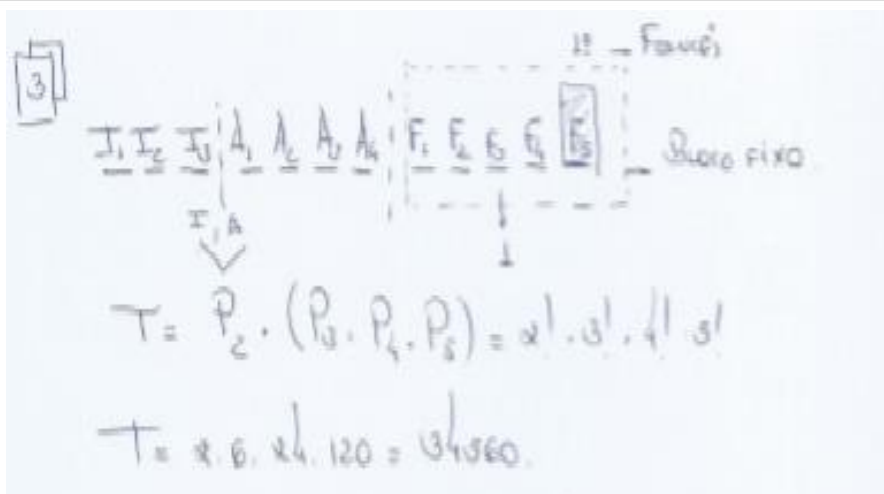 1º - Francês
3
I₁ I₂ I₃ A₁ A₂ A₃ A₄ F₁ F₂ F₃ F₄ F₅ - Bloco fixo
I, A
1
T = P₂ . (P₃ . P₄ . P₅) = 2! . 3! . 4! 5!
T = 2 . 6 . 24 . 120 = 34560.